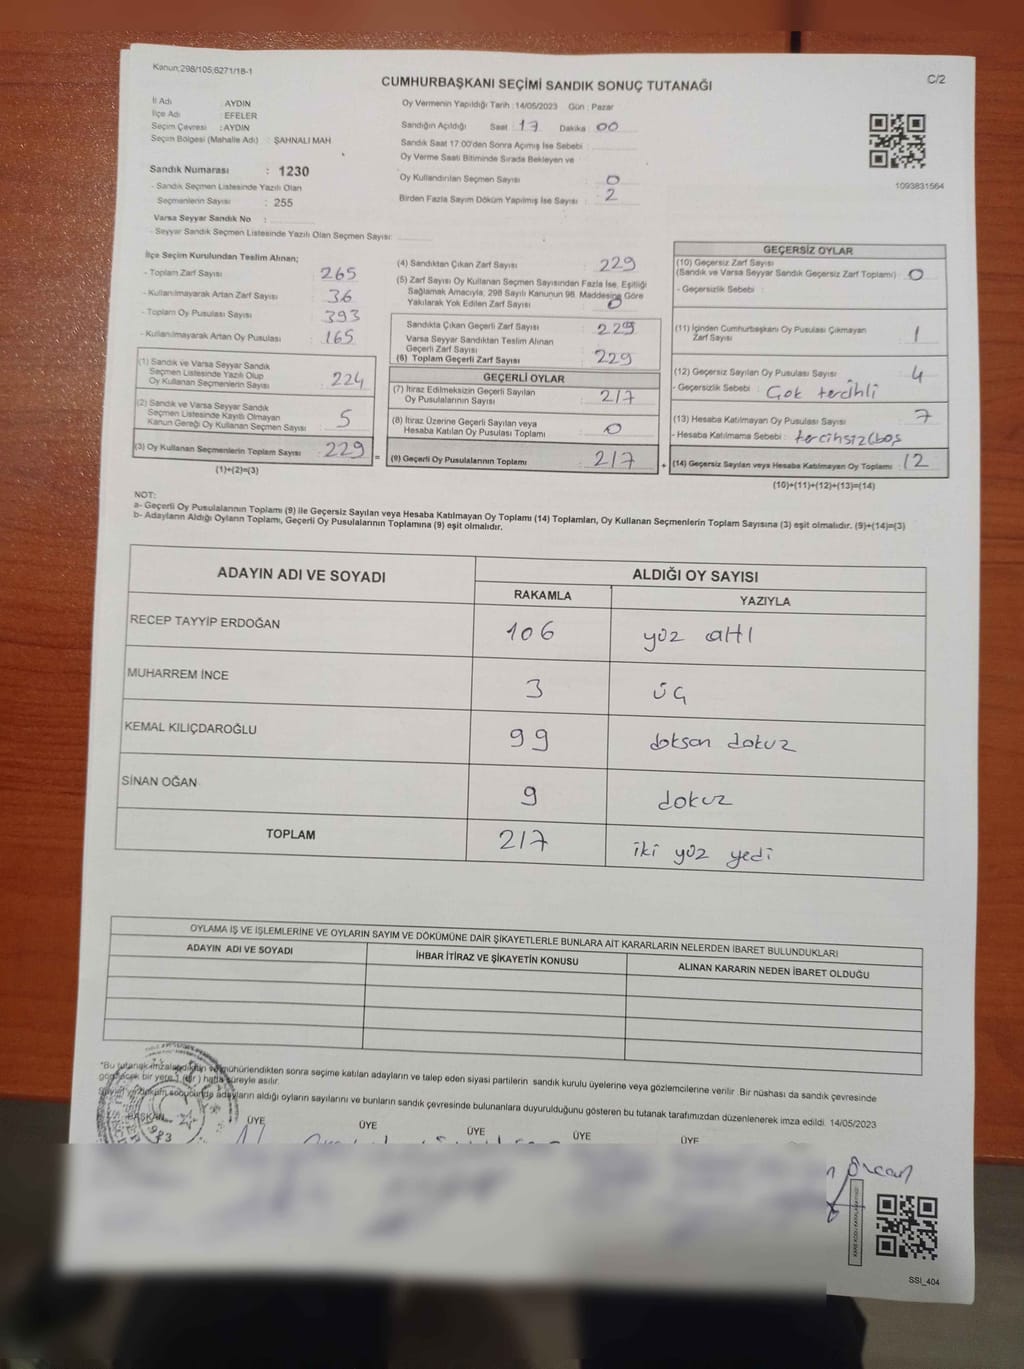 Kanun;298/105;6271/18-1
C/2
CUMHURBAŞKANI SEÇİMİ SANDIK SONUÇ TUTANAĞI
İl Adı : AYDIN
İlçe Adı : EFELER
Seçim Çevresi : AYDIN
Seçim Bölgesi (Mahalle Adı) : ŞAHNALI MAH
Sandık Numarası : 1230
- Sandık Seçmen Listesinde Yazılı Olan
Seçmenlerin Sayısı : 255
Varsa Seyyar Sandık No :
- Seyyar Sandık Seçmen Listesinde Yazılı Olan Seçmen Sayısı:
Oy Vermenin Yapıldığı Tarih : 14/05/2023 Gün : Pazar
Sandığın Açıldığı Saat : 17 Dakika : 00
Sandık Saat 17:00'den Sonra Açımış İse Sebebi :
Oy Verme Saati Bitiminde Sırada Bekleyen ve
Oy Kullandırılan Seçmen Sayısı : 0
Birden Fazla Sayım Döküm Yapılmış İse Sayısı : 2
1093831564
İlçe Seçim Kurulundan Teslim Alınan;
- Toplam Zarf Sayısı : 265
- Kullanılmayarak Artan Zarf Sayısı : 36
- Toplam Oy Pusulası Sayısı : 393
- Kullanılmayarak Artan Oy Pusulası : 165
(1) Sandık ve Varsa Seyyar Sandık
Seçmen Listesinde Yazılı Olup
Oy Kullanan Seçmenlerin Sayısı : 224
(2) Sandık ve Varsa Seyyar Sandık
Seçmen Listesinde Kayıtlı Olmayan
Kanun Gereği Oy Kullanan Seçmen Sayısı : 5
(3) Oy Kullanan Seçmenlerin Toplam Sayısı : 229
(1)+(2)=(3)
(4) Sandıktan Çıkan Zarf Sayısı : 229
(5) Zarf Sayısı Oy Kullanan Seçmen Sayısından Fazla İse, Eşitliği
Sağlamak Amacıyla, 298 Sayılı Kanunun 98. Maddesine Göre
Yakılarak Yok Edilen Zarf Sayısı : 0
Sandıkta Çıkan Geçerli Zarf Sayısı : 229
Varsa Seyyar Sandıktan Teslim Alınan
Geçerli Zarf Sayısı :
(6) Toplam Geçerli Zarf Sayısı : 229
GEÇERLİ OYLAR
(7) İtiraz Edilmeksizin Geçerli Sayılan
Oy Pusulalarının Sayısı : 217
(8) İtiraz Üzerine Geçerli Sayılan veya
Hesaba Katılan Oy Pusulası Toplamı : 0
= (9) Geçerli Oy Pusulalarının Toplamı : 217 +
GEÇERSİZ OYLAR
(10) Geçersiz Zarf Sayısı
(Sandık ve Varsa Seyyar Sandık Geçersiz Zarf Toplamı) : 0
- Geçersizlik Sebebi :
(11) İçinden Cumhurbaşkanı Oy Pusulası Çıkmayan
Zarf Sayısı : 1
(12) Geçersiz Sayılan Oy Pusulası Sayısı : 4
- Geçersizlik Sebebi : Çok tercihli
(13) Hesaba Katılmayan Oy Pusulası Sayısı : 7
- Hesaba Katılmama Sebebi : tercihsiz(boş
(14) Geçersiz Sayılan veya Hesaba Katılmayan Oy Toplamı : 12
(10)+(11)+(12)+(13)=(14)
NOT:
a- Geçerli Oy Pusulalarının Toplamı (9) ile Geçersiz Sayılan veya Hesaba Katılmayan Oy Toplamı (14) Toplamları, Oy Kullanan Seçmenlerin Toplam Sayısına (3) eşit olmalıdır. (9)+(14)=(3)
b- Adayların Aldığı Oyların Toplamı, Geçerli Oy Pusulalarının Toplamına (9) eşit olmalıdır.
ADAYIN ADI VE SOYADI
ALDIĞI OY SAYISI
RAKAMLA YAZIYLA
RECEP TAYYİP ERDOĞAN 106 yüz altı
MUHARREM İNCE 3 üç
KEMAL KILIÇDAROĞLU 99 doksan dokuz
SİNAN OĞAN 9 dokuz
TOPLAM 217 iki yüz yedi
OYLAMA İŞ VE İŞLEMLERİNE VE OYLARIN SAYIM VE DÖKÜMÜNE DAİR ŞİKAYETLERLE BUNLARA AİT KARARLARIN NELERDEN İBARET BULUNDUKLARI
ADAYIN ADI VE SOYADI İHBAR İTİRAZ VE ŞİKAYETİN KONUSU ALINAN KARARIN NEDEN İBARET OLDUĞU
*Bu tutanak imzalandıktan ve mühürlendikten sonra seçime katılan adayların ve talep eden siyasi partilerin sandık kurulu üyelerine veya gözlemcilerine verilir. Bir nüshası da sandık çevresinde
görülecek bir yere 1 (bir) hafta süreyle asılır.
Sayım ve döküm sonucunda adayların aldığı oyların sayılarını ve bunların sandık çevresinde bulunanlara duyurulduğunu gösteren bu tutanak tarafımızdan düzenlenerek imza edildi. 14/05/2023
BAŞKAN ÜYE ÜYE ÜYE ÜYE ÜYE
SSI_404